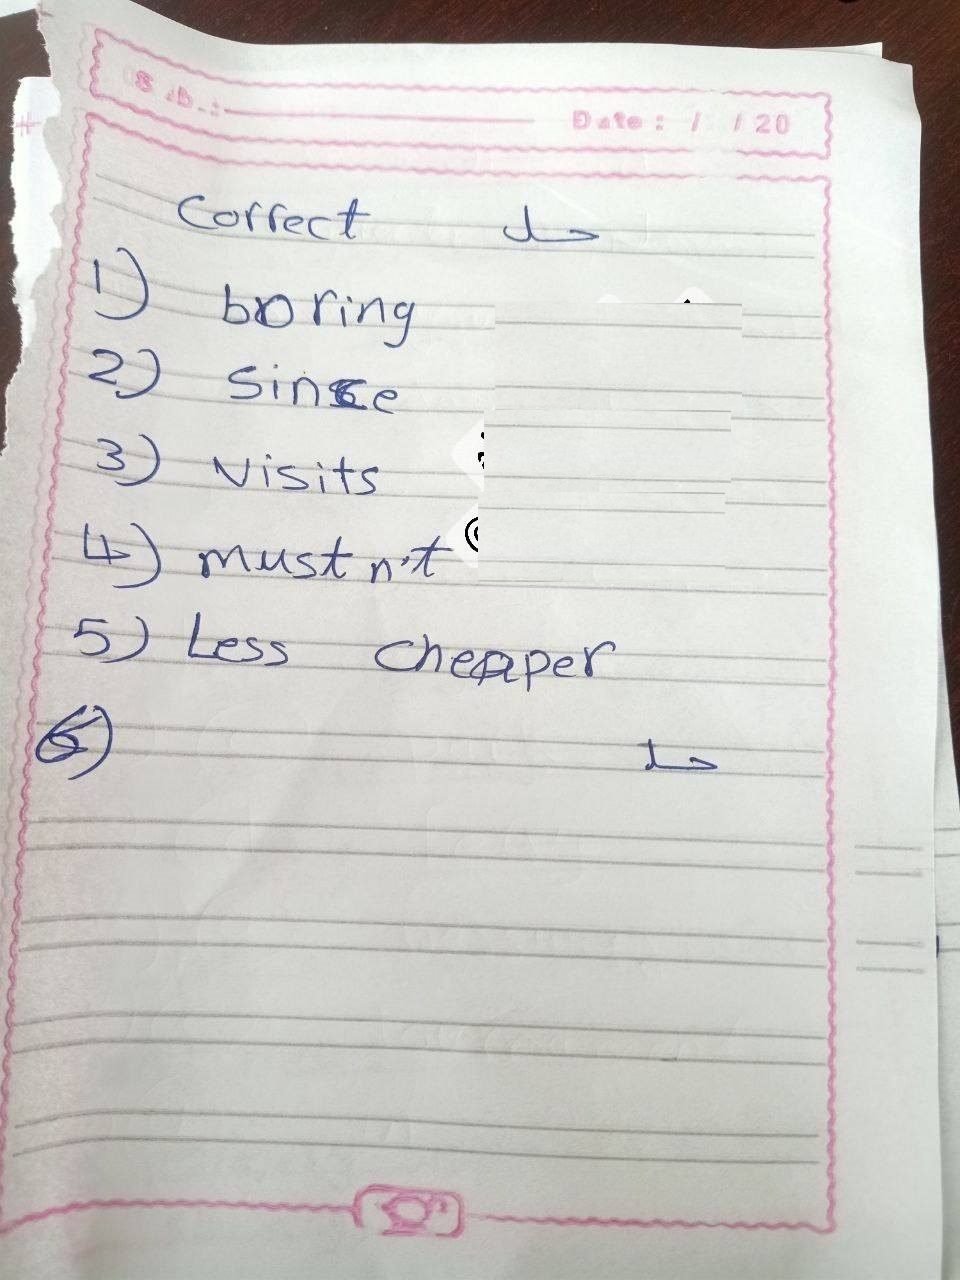 Sub.: Date: / / 20
Correct حل
1) boring
2) Since
3) visits
4) mustn't
5) Less cheaper
6) حل